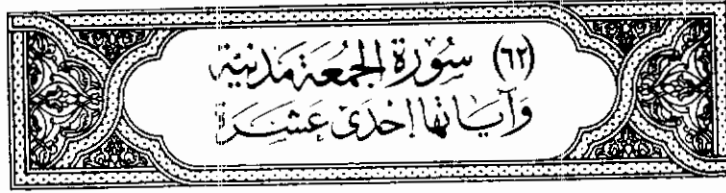 (٦٢) سُوْرَة الجُمُعَة مَدَنيَّة
وَآيَاتها إحْدَىٰ عَشَرَة